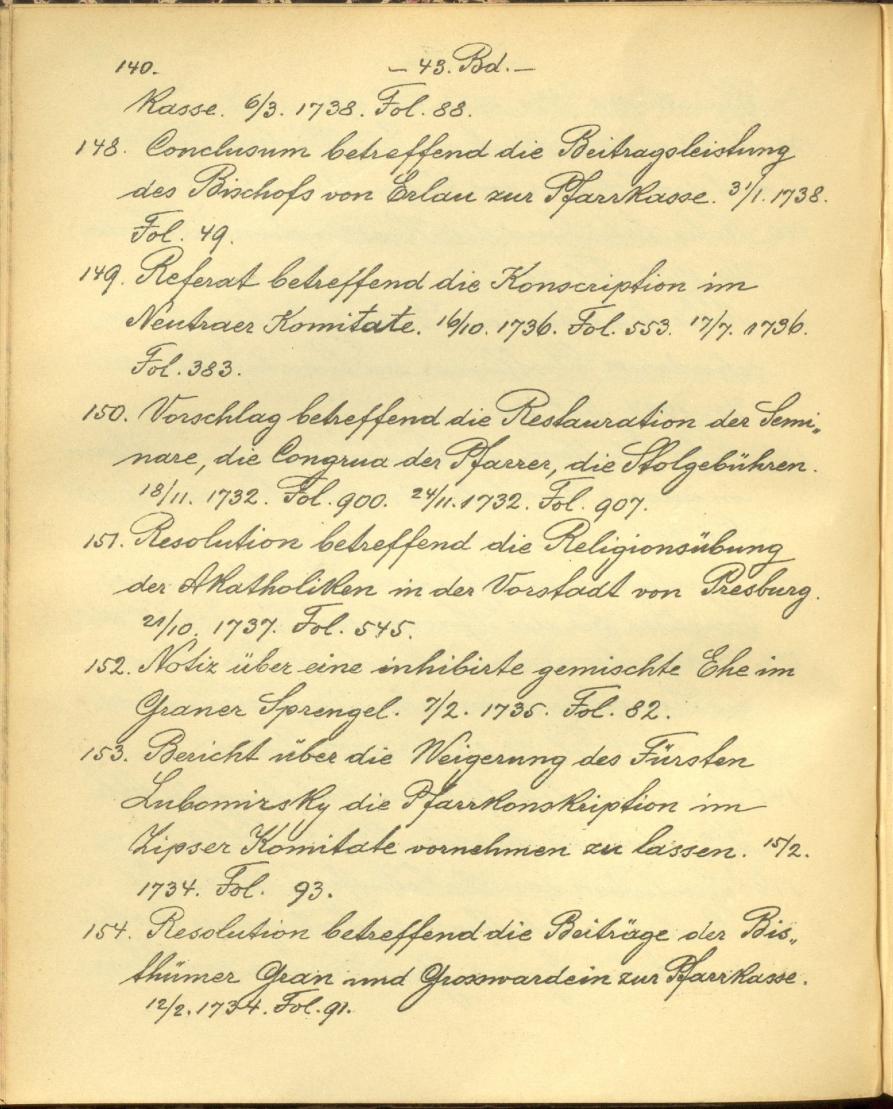 140. – 43. Bd. –
Kasse. 6/3. 1738. Fol. 88.
148. Conclusum betreffend die Beitragsleistung
des Bischofs von Erlau zur Pfarrkasse. 31/1. 1738.
Fol. 49.
149. Referat betreffend die Konscription im
Neutraer Komitate. 16/10. 1736. Fol. 553. 17/7. 1736.
Fol. 383.
150. Vorschlag betreffend die Restauration der Semi„
nare, die Congrua der Pfarrer, die Stolgebühren.
18/11. 1732. Fol. 900. 24/11. 1732. Fol. 907.
151. Resolution betreffend die Religionsübung
der Akatholiken in der Vorstadt von Presburg.
21/10. 1737. Fol. 545.
152. Notiz über eine inhibirte gemischte Ehe im
Graner Sprengel. 7/2. 1735. Fol. 82.
153. Bericht über die Weigerung des Fürsten
Lubomirsky die Pfarrkonskription im
Zipser Komitate vornehmen zu lassen. 15/2.
1734. Fol. 93.
154. Resolution betreffend die Beiträge der Bis„
thümer Gran und Grosswardein zur Pfarrkasse.
12/2. 1734. Fol. 91.